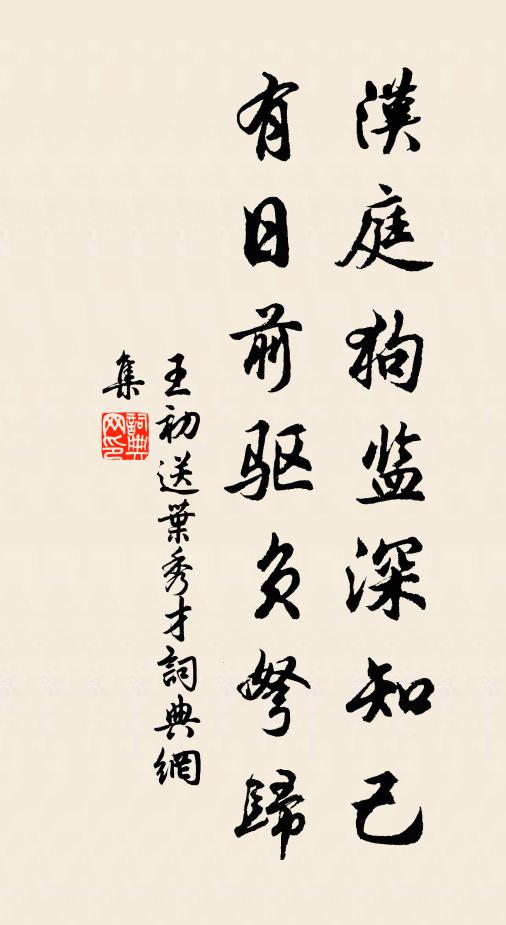 漢庭狗监深知己
有日前驱負弩歸
王初送葉秀才詞典網
集
詞典
网印